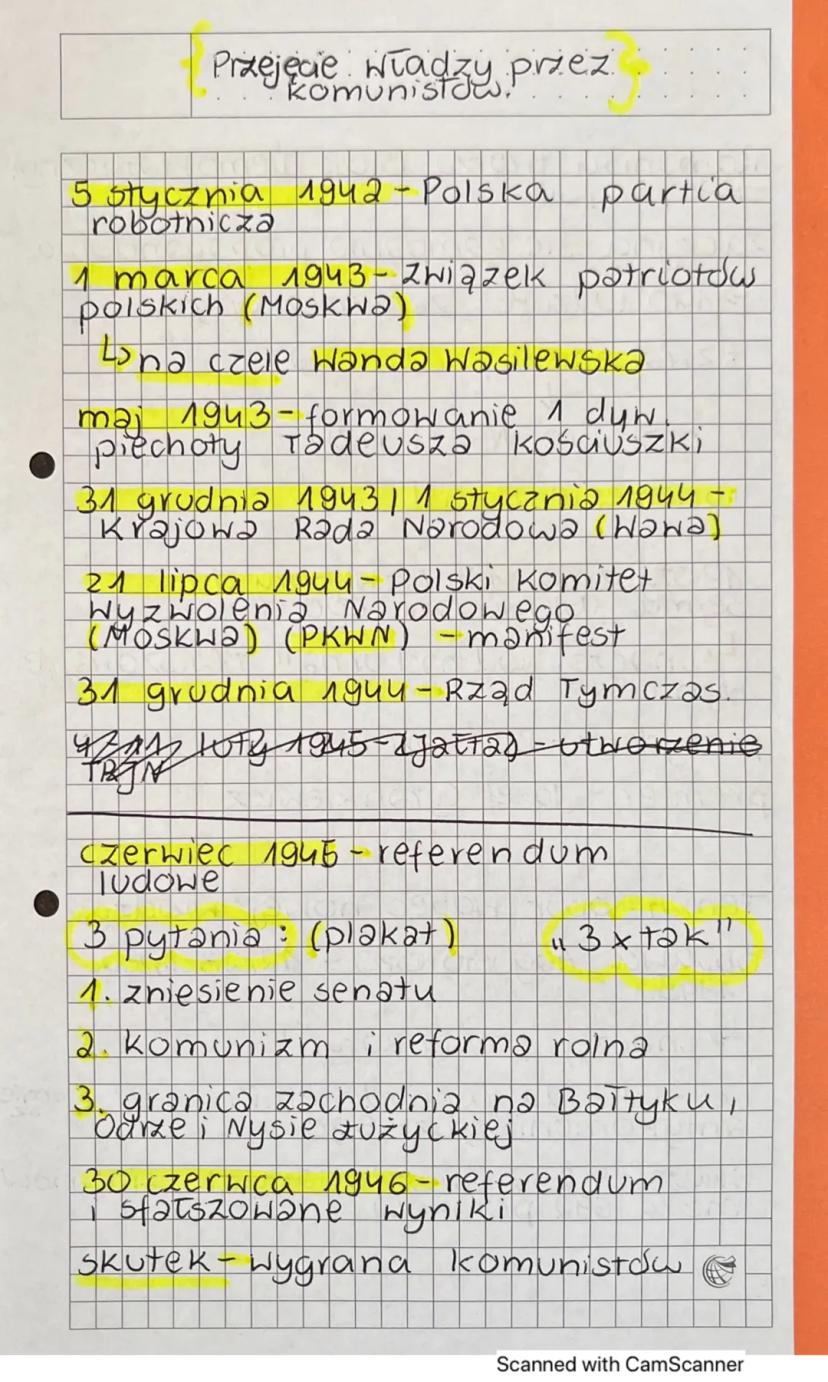 Przejęcie władzy przez
komunistów.
5 stycznia 1942 - Polska partia
robotnicza
1 marca 1943 - związek patriotów
polskich (Moskwa)
↳ na czele Wanda Wasilewska
maj 1943 - formowanie 1 dyw.
piechoty Tadeusza Kościuszki
31 grudnia 1943 / 1 stycznia 1944 -
Krajowa Rada Narodowa (Wawa)
21 lipca 1944 - Polski Komitet
Wyzwolenia Narodowego
(Moskwa) (PKWN) - manifest
31 grudnia 1944 - Rząd Tymczas.
luty 1945 - (Jałta) - utworzenie
TRJN
czerwiec 1945 - referendum
ludowe
3 pytania : (plakat) „3 x tak"
1. zniesienie senatu
2. komunizm i reforma rolna
3. granica zachodnia na Bałtyku,
Odrze i Nysie Łużyckiej
30 czerwca 1946 - referendum
i sfałszowane wyniki
skutek - wygrana komunistów
Scanned with CamScanner